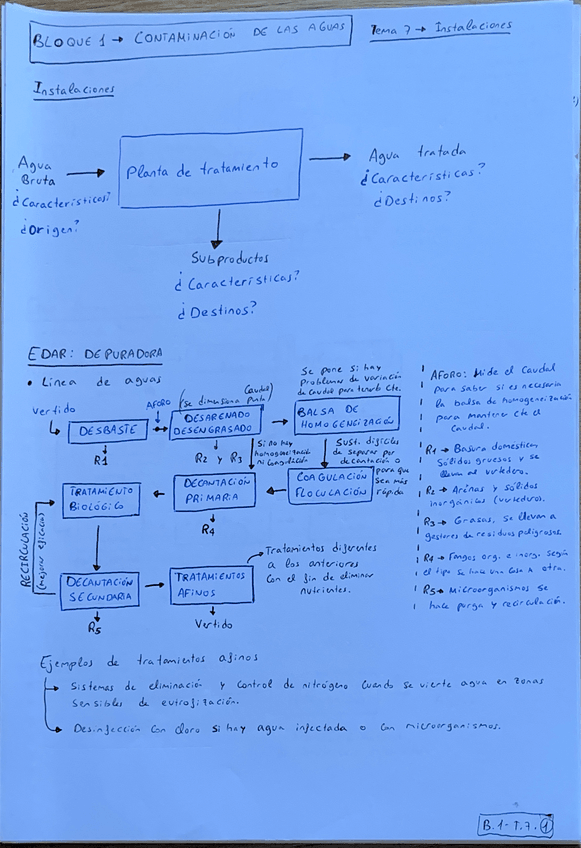 BLOQUE 1 → CONTAMINACIÓN DE LAS AGUAS
Tema 7 → Instalaciones
Instalaciones
Agua
Bruta
¿Características?
¿Origen?
Planta de tratamiento
Agua tratada
¿Características?
¿Destinos?
Subproductos
¿Características?
¿Destinos?
EDAR: DEPURADORA
• Línea de aguas
Vertido
DESBASTE
R1
AFORO
(se dimensiona punta)
Caudal
DESARENADO
DESENGRASADO
R2 y R3
Si no hay
homogeneización
ni coagulación
Se pone si hay
Problemas de variación
de caudal para tenerlo cte.
BALSA DE
HOMOGENEIZACIÓN
Sust. difíciles
de separar por
decantación o
para que
sea más
rápido
COAGULACIÓN
FLOCULACIÓN
DECANTACIÓN
PRIMARIA
R4
TRATAMIENTO
BIOLÓGICO
RECIRCULACIÓN
(mejorar eficacia)
DECANTACIÓN
SECUNDARIA
R5
TRATAMIENTOS
AFINOS
Vertido
Tratamientos diferentes
a los anteriores
con el fin de eliminar
nutrientes.
AFORO: Mide el caudal
para saber si es necesaria
la balsa de homogeneización
para mantener cte el
caudal.
R1 → Basura doméstica,
Sólidos gruesos y se
lleva al vertedero.
R2 → Arenas y sólidos
inorgánicos (vertedero).
R3 → Grasas, se llevan a
gestores de residuos peligrosos
R4 → Fangos org. e inorg. según
el tipo se hace una cosa u otra.
R5 → Microorganismos se
hace purga y recirculación.
Ejemplos de tratamientos afinos
→ Sistemas de eliminación y control de nitrógeno cuando se vierte agua en zonas
sensibles de eutrofización.
→ Desinfección con cloro si hay agua infectada o con microorganismos.
B.1-T.7. 1